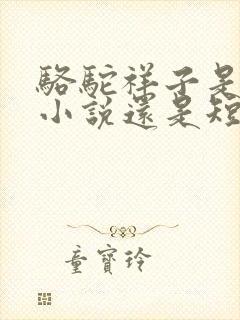 駱駝祥子是
小說還是短
童寶玲